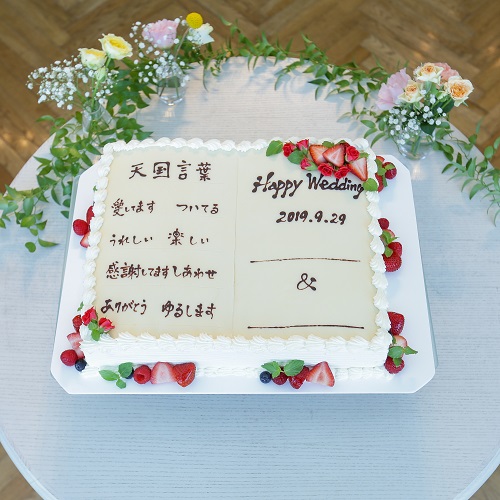 天国言葉
愛してます ついてる
うれしい 楽しい
感謝してます しあわせ
ありがとう ゆるします
Happy Wedding
2019.9.29
&